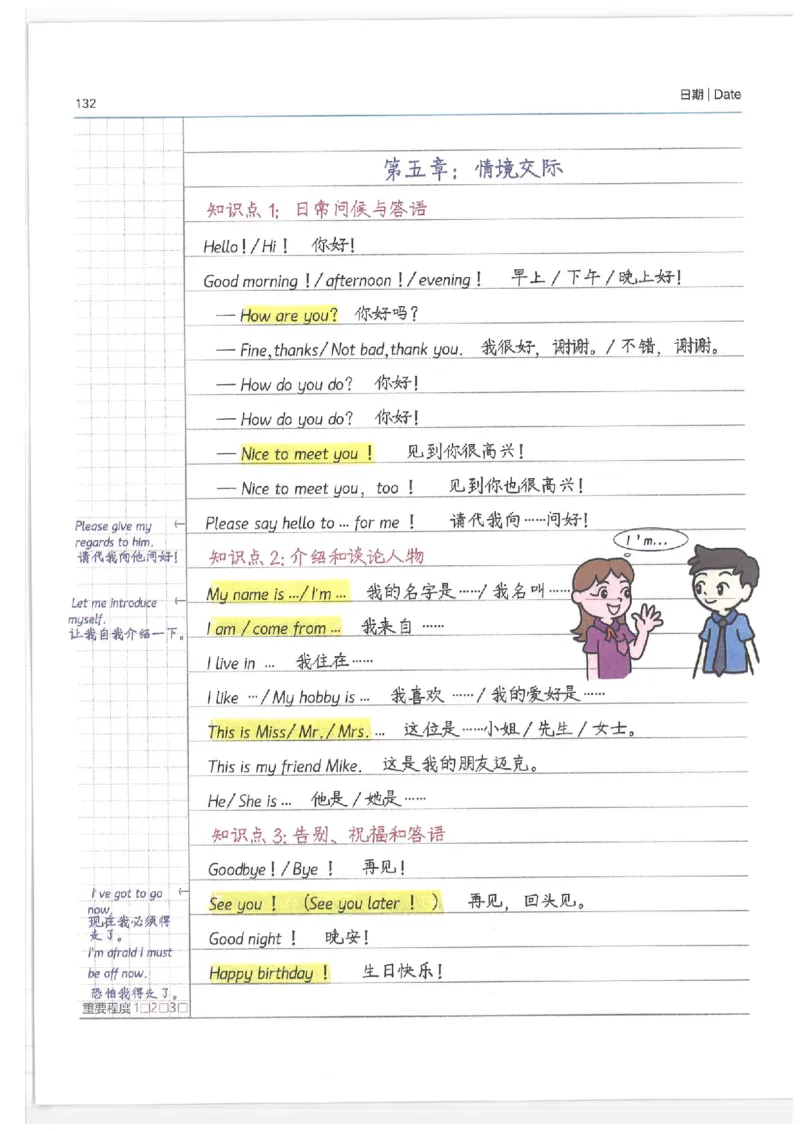 132
日期 | Date
第五章：情境交际
知识点 1：日常问候与答语
Hello！/ Hi！ 你好！
Good morning！/ afternoon！/ evening！ 早上 / 下午 / 晚上好！
— How are you? 你好吗？
— Fine,thanks/ Not bad,thank you. 我很好，谢谢。/ 不错，谢谢。
— How do you do? 你好！
— How do you do? 你好！
— Nice to meet you！ 见到你很高兴！
— Nice to meet you, too！ 见到你也很高兴！
Please say hello to … for me！ 请代我向……问好！
Please give my
regards to him.
请代我向他问好！
知识点 2：介绍和谈论人物
I'm...
My name is …/ I'm … 我的名字是……/ 我名叫……
Let me introduce
myself.
让我自我介绍一下。
I am / come from … 我来自 ……
I live in … 我住在……
I like … / My hobby is … 我喜欢 ……/ 我的爱好是……
This is Miss/ Mr. / Mrs. … 这位是……小姐 / 先生 / 女士。
This is my friend Mike. 这是我的朋友迈克。
He/ She is … 他是 / 她是……
知识点 3：告别、祝福和答语
Goodbye！/ Bye！ 再见！
See you！ （See you later！ ） 再见，回头见。
Good night！ 晚安！
Happy birthday！ 生日快乐！
I've got to go
now.
现在我必须得
走了。
I'm afraid I must
be off now.
恐怕我得走了。
重要程度 1□2□3□